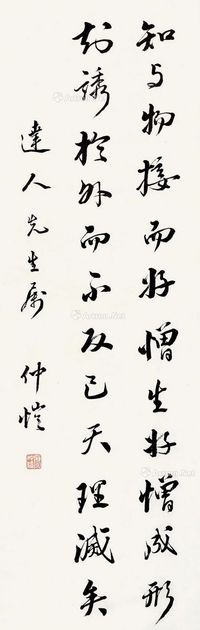 知与物接而好憎生好憎成形
知诱於外而不反己天理灭矣
達人先生属
仲愷